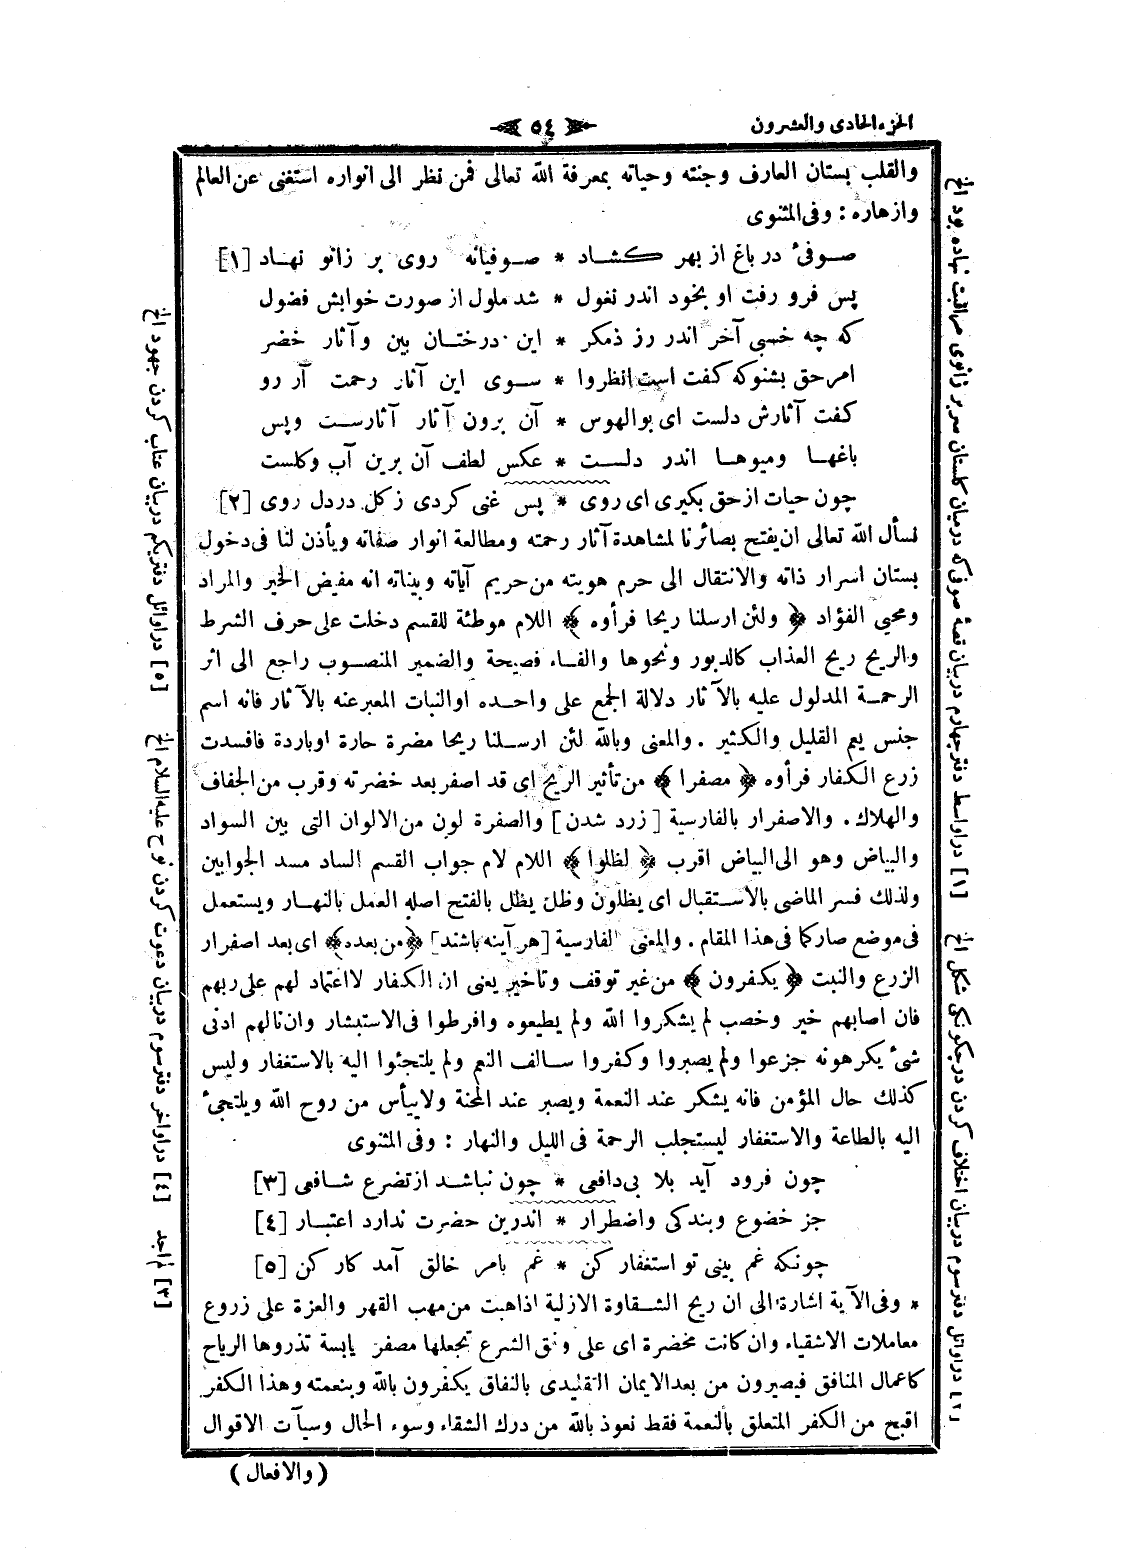 الجزء الحادى والعشرون
٥٤
والقلب بستان العارف وجنته وحياته بمعرفة الله تعالى فمن نظر الى انواره استغنى عن العالم
وازهاره : وفى المثنوى
صوفىء در باغ از بهر كشاد * صوفيانه روى بر زانو نهاد [١]
پس فرو رفت او بخود اندر نغول * شد ملول از صورت خوابش فضول
كه چه خسبى آخر اندر رز نكر * اين درختان بين وآثار خضر
امر حق بشنو كه كفت است انظروا * سوى اين آثار رحمت آر رو
كفت آثارش دلست اى بوالهوس * آن برون آثار آثارست وپس
باغها وميوها اندر دلست * عكس لطف آن برين آب وكلست
چون حيات از حق بكيرى اى روى * پس غنى كردى زكل در دل روى [٢]
نسأل الله تعالى ان يفتح بصائرنا لمشاهدة آثار رحمته ومطالعة انوار صفاته ويأذن لنا فى دخول
بستان اسرار ذاته والانتقال الى حرم هويته من حريم آياته وبيناته انه مفيض الخير والمراد
ومحيى الفؤاد ﴿ ولئن ارسلنا ريحا فرأوه ﴾ اللام موطئة للقسم دخلت على حرف الشرط
والريح ريح العذاب كالدبور ونحوها والفاء فصيحة والضمير المنصوب راجع الى اثر
الرحمة المدلول عليه بالآثار دلالة الجمع على واحده او النبات المعبر عنه بالآثار فانه اسم
جنس يعم القليل والكثير . والمعنى وبالله لئن ارسلنا ريحا مضرة حارة اوباردة فافسدت
زرع الكفار فرأوه ﴿ مصفرا ﴾ من تأثير الريح اى قد اصفر بعد خضرته وقرب من الجفاف
والهلاك . والاصفرار بالفارسية [ زرد شدن ] والصفرة لون من الالوان التى بين السواد
والبياض وهو الى البياض اقرب ﴿ لظلوا ﴾ اللام لام جواب القسم الساد مسد الجوابين
ولذلك فسر الماضى بالاستقبال اى يظلون وظل يظل بالفتح اصله العمل بالنهار ويستعمل
فى موضع صار كما فى هذا المقام . والمعنى بالفارسية [ هر آينه باشند ] ﴿ من بعده ﴾ اى بعد اصفرار
الزرع والنبت ﴿ يكفرون ﴾ من غير توقف وتأخير يعنى ان الكفار لااعتماد لهم على ربهم
فان اصابهم خير وخصب لم يشكروا الله ولم يطيعوه وافرطوا فى الاستبشار وان نالهم ادنى
شىء يكرهونه جزعوا ولم يصبروا وكفروا سالف النعم ولم يلتجئوا اليه بالاستغفار وليس
كذلك حال المؤمن فانه يشكر عند النعمة ويصبر عند المحنة ولا ييأس من روح الله ويلتجىء
اليه بالطاعة والاستغفار ليستجلب الرحمة فى الليل والنهار : وفى المثنوى
چون فرود آيد بلا بى دافعى * چون نباشد از تضرع شافعى [٣]
جز خضوع وبندكى واضطرار * اندرين حضرت ندارد اعتبار [٤]
چونكه غم بينى تو استغفار كن * غم بامر خالق آمد كار كن [٥]
* وفى الآية اشارة الى ان ريح الشقاوة الازلية اذا هبت من مهب القهر والعزة على زروع
معاملات الاشقياء وان كانت مخضرة اى على وفق الشرع تجعلها مصفرة يابسة تذروها الرياح
كاعمال المنافق فيصيرون من بعد الايمان التقليدى بالنفاق يكفرون بالله وبنعمته وهذا الكفر
اقبح من الكفر المتعلق بالنعمة فقط نعوذ بالله من درك الشقاء وسوء الحال وسيآت الاقوال
( والافعال )
[١] در اواسط دفتر چهارم در بيان قصهٔ صوفى كه در ميان كلستان سر بر زانوى مراقبت نهاده بود الخ
[٢] در اوائل دفتر سوم در بيان اختلاف كردن در چكونكى شكل الخ
[٣] لم اجد
[٤] در اواخر دفتر سوم در بيان دعوت كردن نوح عليه السلام الخ
[٥] در اوائل دفتر يكم در بيان عتاب كردن جهود الخ